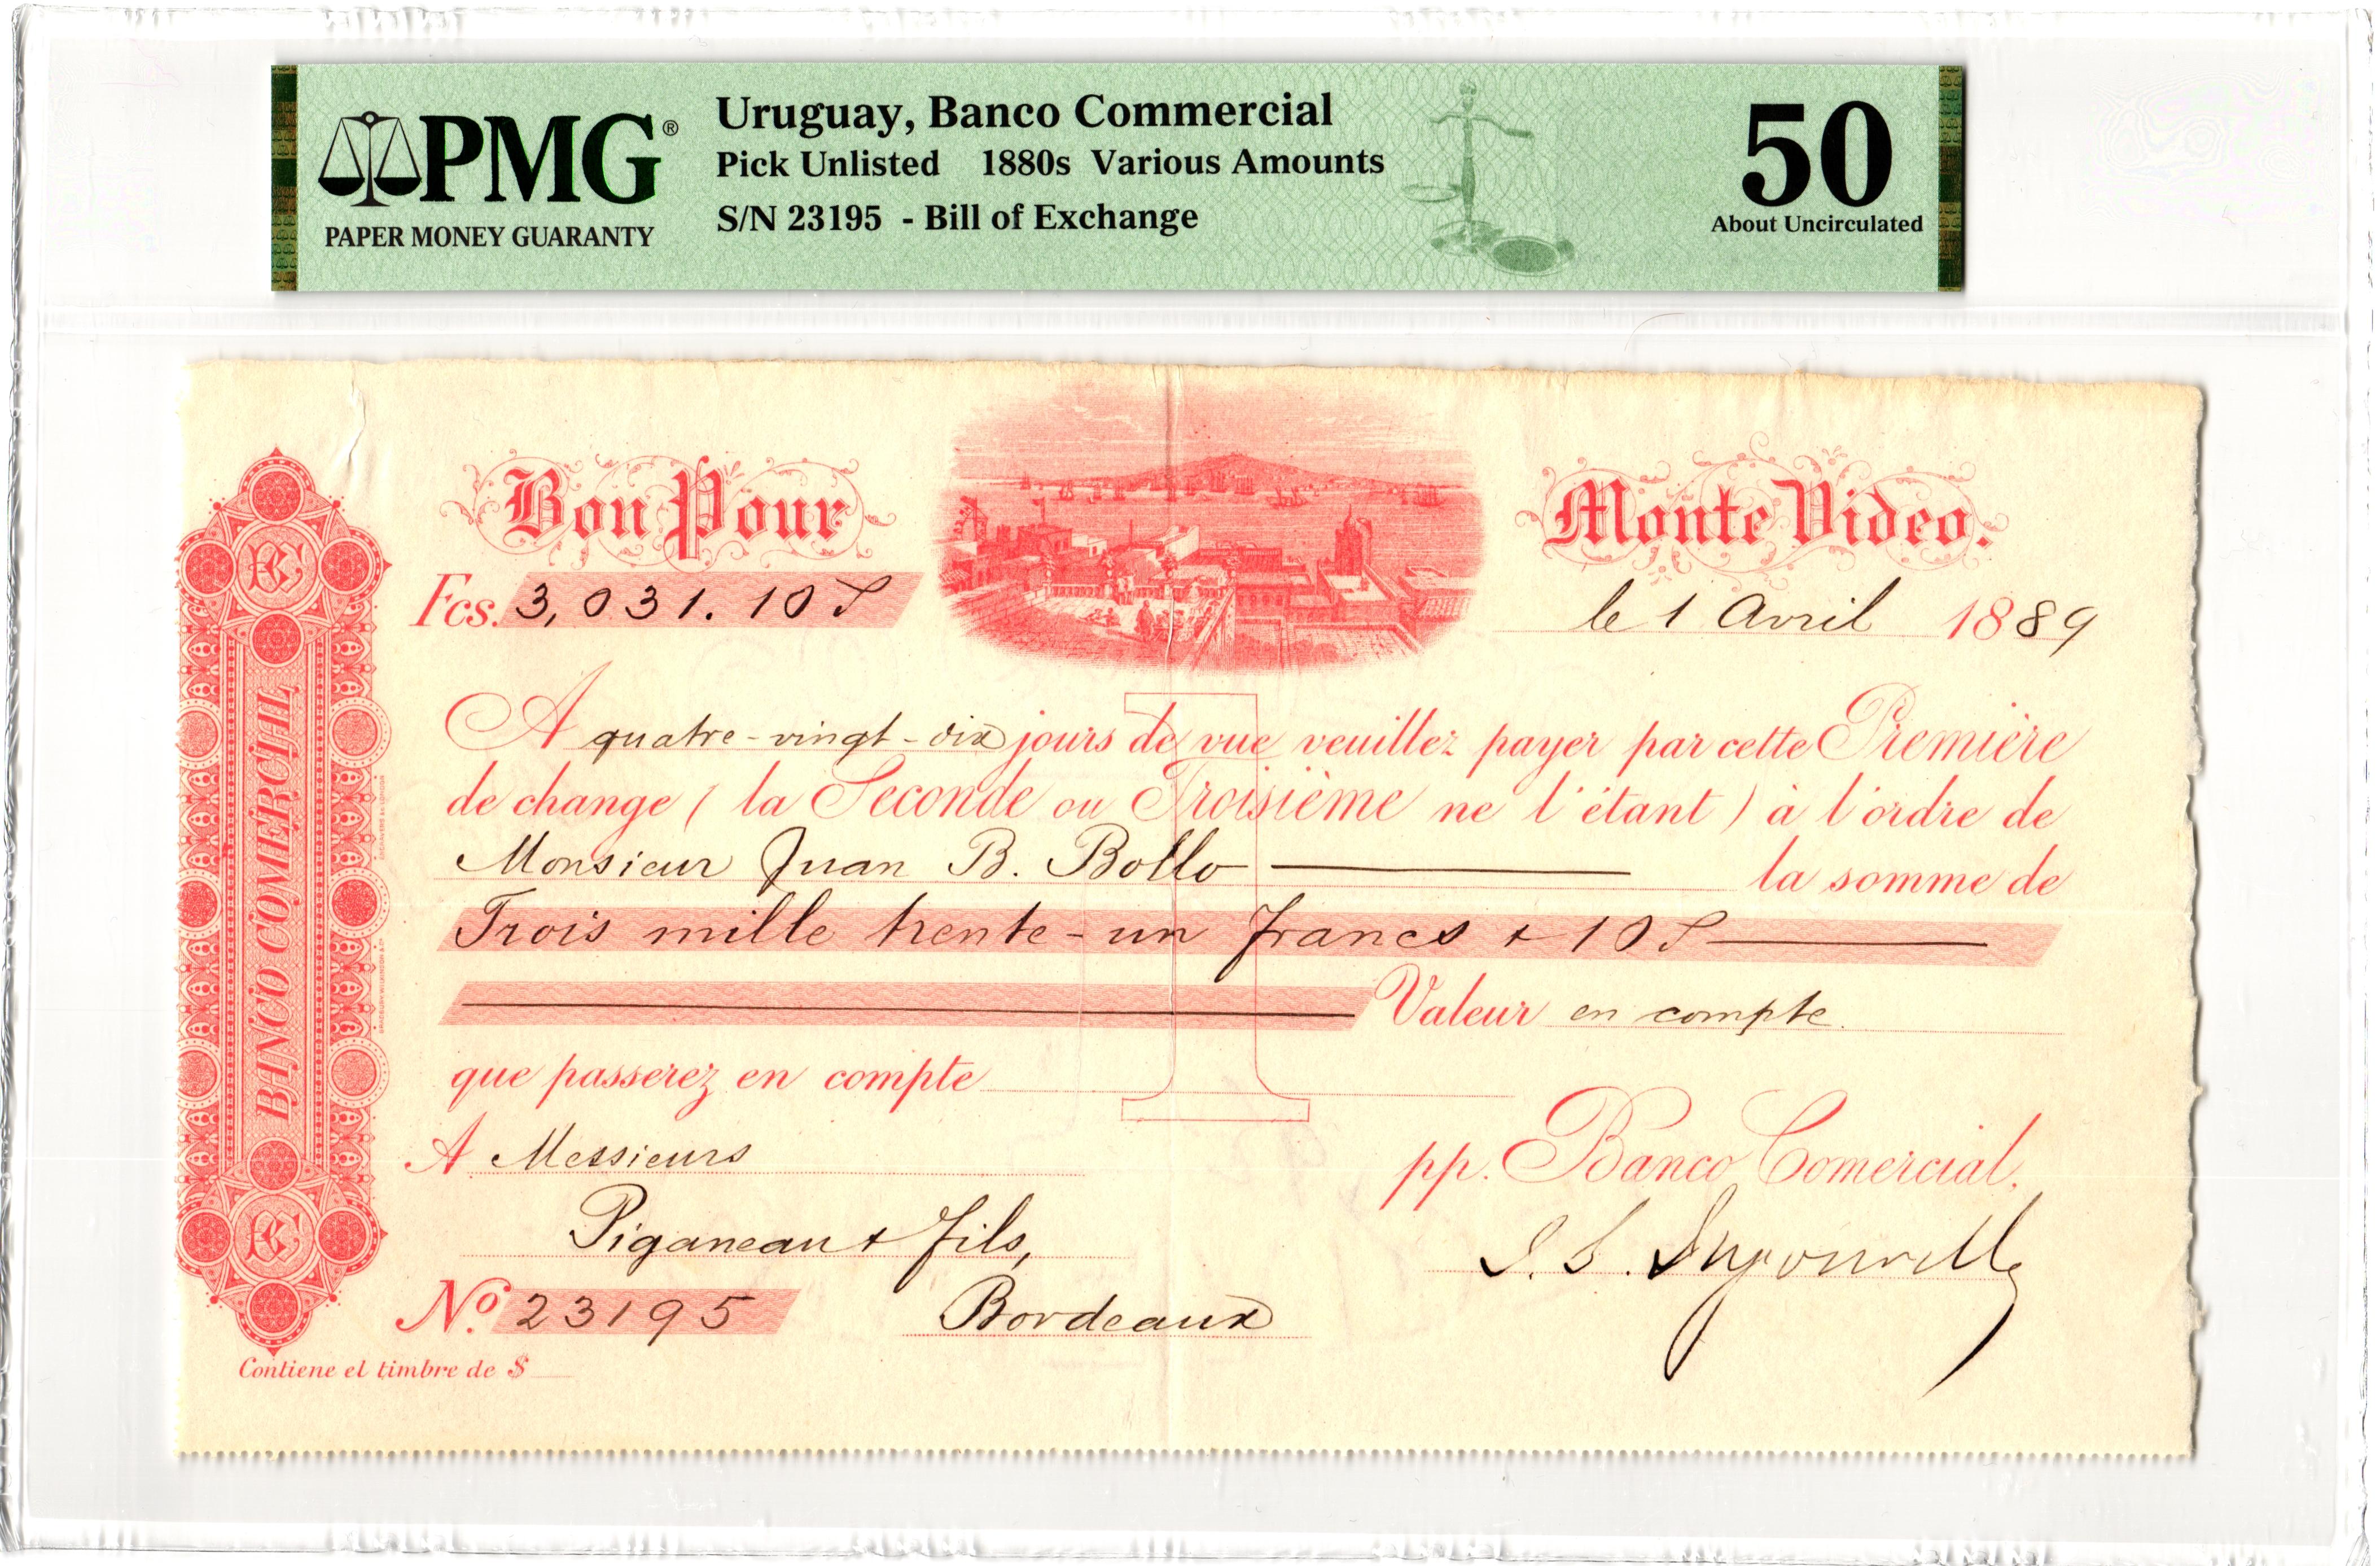 PMG®
PAPER MONEY GUARANTY
Uruguay, Banco Commercial
Pick Unlisted 1880s Various Amounts
S/N 23195 - Bill of Exchange
50
About Uncirculated
Bon Pour
Monte Video.
Fcs. 3,031.10
le 1 Avril 1889
A quatre-vingt-dix jours de vue veuillez payer par cette Première
de change ( la Seconde ou Troisième ne l'étant ) à l'ordre de
Monsieur Juan B. Bollo la somme de
Trois mille trente-un francs + 10
Valeur en compte.
que passerez en compte
A Messieurs
pp. Banco Comercial.
Piganeau + fils,
No. 23195
Bordeaux
Contiene el timbre de $
BANCO COMERCIAL
BC
BC
I
BRADBURY WILKINSON & Co. ENGRAVERS &c. LONDON